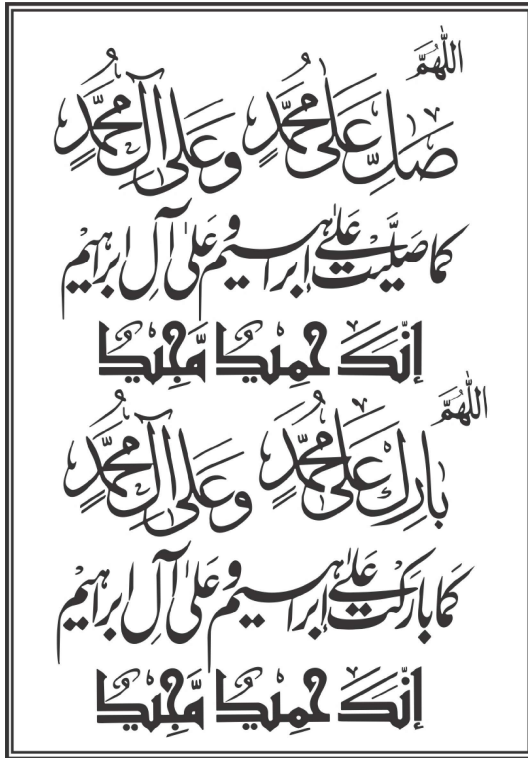 اللّٰهُمَّ
صَلِّ عَلٰى مُحَمَّدٍ وَعَلٰى آلِ مُحَمَّدٍ
كما صَلَّيْتَ عَلٰى إبراهيم وعَلٰى آلِ ابراهيم
إنّكَ حَمِيدٌ مَّجِيدٌ
اللّٰهُمَّ
بارِكْ عَلٰى مُحَمَّدٍ وَعَلٰى آلِ مُحَمَّدٍ
كَمَا بارَكْتَ عَلٰى إبراهيم وعَلٰى آلِ ابراهيم
إنّكَ حَمِيدٌ مَّجِيدٌ